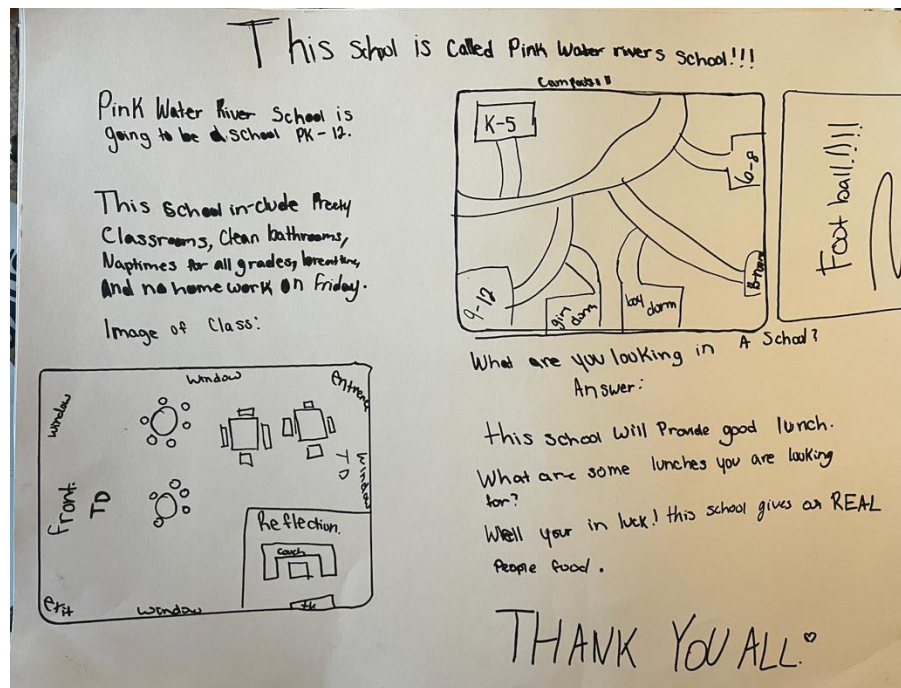 This school is called Pink Water rivers School!!!
Pink Water River School is
going to be a school PK-12.
This School in-clude Preety
Classrooms, Clean bathrooms,
Naptimes for all grades,
And no home work on friday.
Image of Class:
window
entrence
window
front
TD
TD
Window
Reflection.
couch
exit
window
K-5
6-8
9-12
girl
dorm
boy
dorm
Foot ball!!!!
What are you looking in A School?
Answer:
this school will Provide good lunch.
What are some lunches you are looking
for?
Well your in luck! this school gives as REAL
People food.
THANK YOU ALL.♡